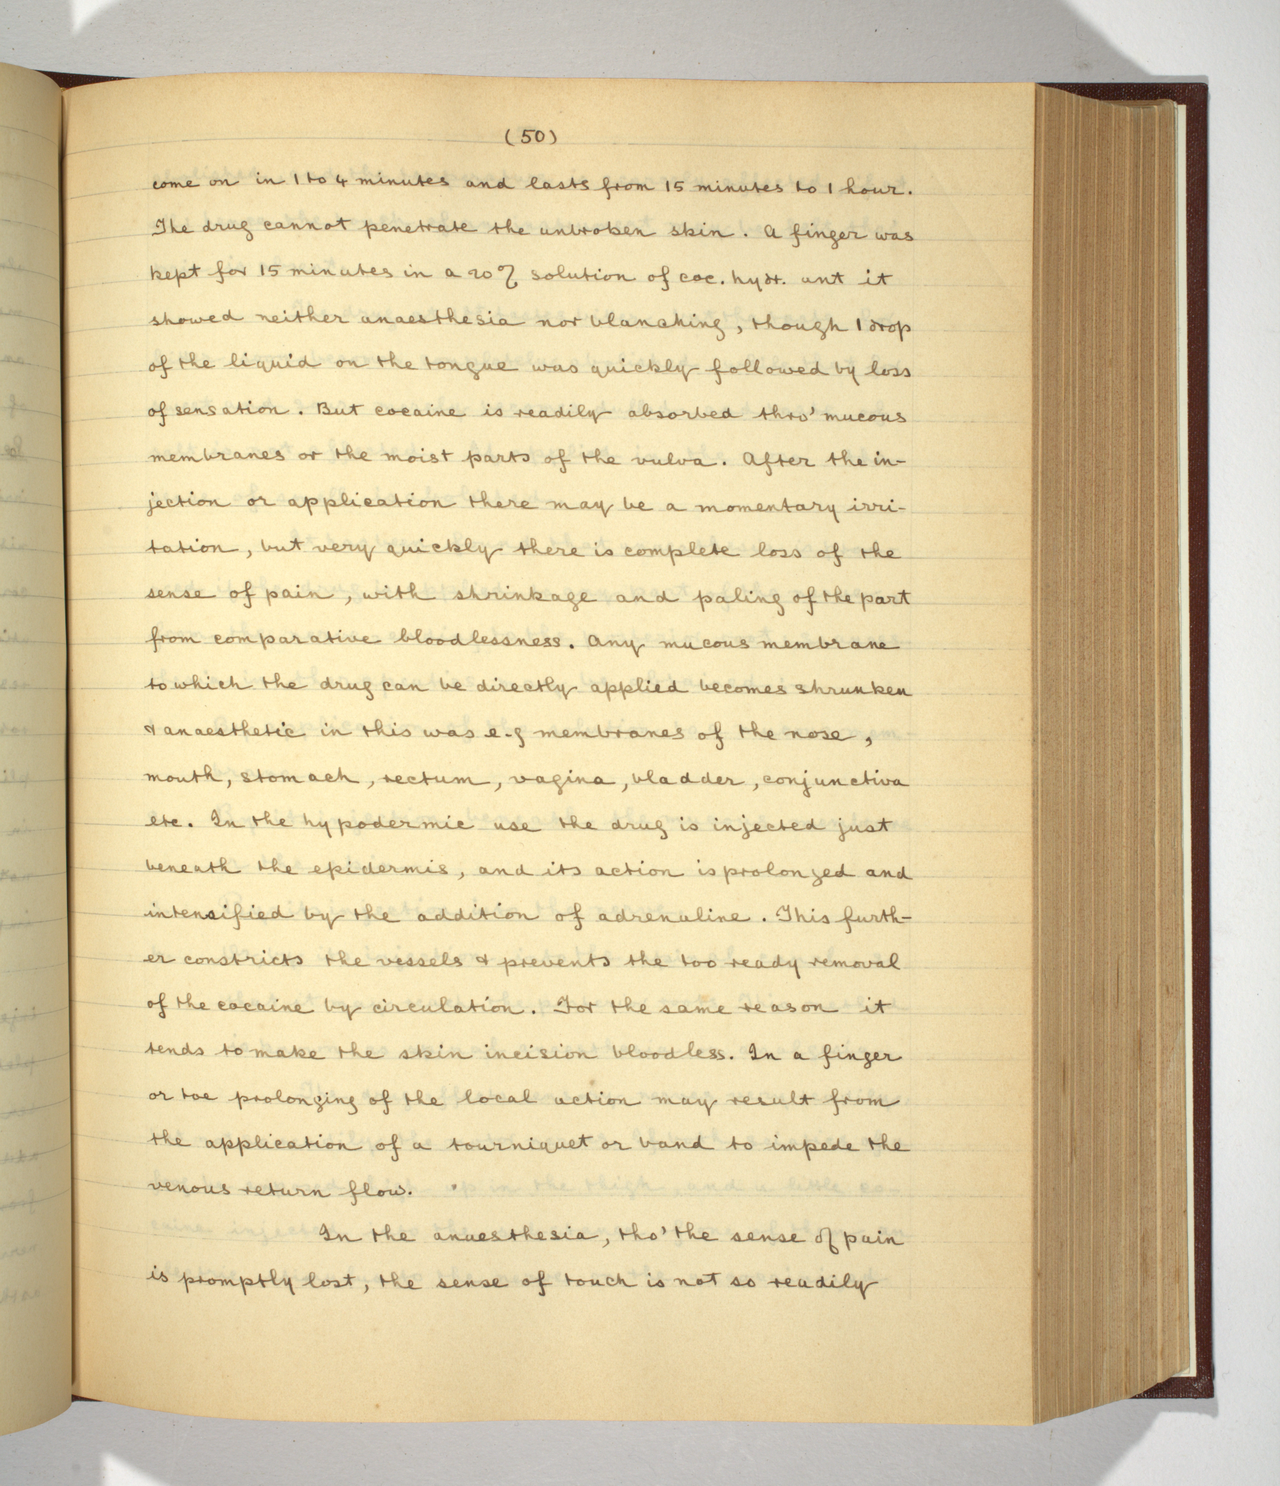 (50)
come on in 1 to 4 minutes and lasts from 15 minutes to 1 hour.
The drug cannot penetrate the unbroken skin. A finger was
kept for 15 minutes in a 20% solution of coc. hydr. unt it
showed neither anaesthesia nor blanching, though 1 drop
of the liquid on the tongue was quickly followed by loss
of sensation. But cocaine is readily absorbed thro' mucous
membranes or the moist parts of the vulva. After the in-
jection or application there may be a momentary irri-
tation, but very quickly there is complete loss of the
sense of pain, with shrinkage and paling of the part
from comparative bloodlessness. Any mucous membrane
to which the drug can be directly applied becomes shrunken
& anaesthetic in this was e.g membranes of the nose,
mouth, stomach, rectum, vagina, bladder, conjunctiva
etc. In the hypodermic use the drug is injected just
beneath the epidermis, and its action is prolonged and
intensified by the addition of adrenaline. This furth-
er constricts the vessels & prevents the too ready removal
of the cocaine by circulation. For the same reason it
tends to make the skin incision bloodless. In a finger
or toe prolonging of the local action may result from
the application of a tourniquet or band to impede the
venous return flow.
In the anaesthesia, tho' the sense of pain
is promptly lost, the sense of touch is not so readily